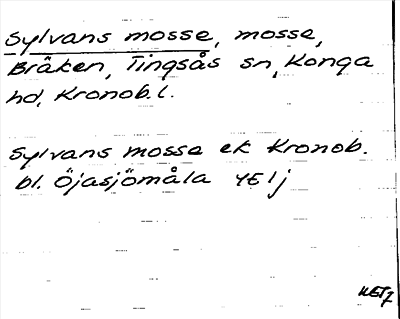 Sylvans mosse, mosse,
Bråken, Tingsås sn, Konga
hd, Kronob. l.
Sylvans mosse ek Kronob.
bl. Öjasjömåla 4E1j